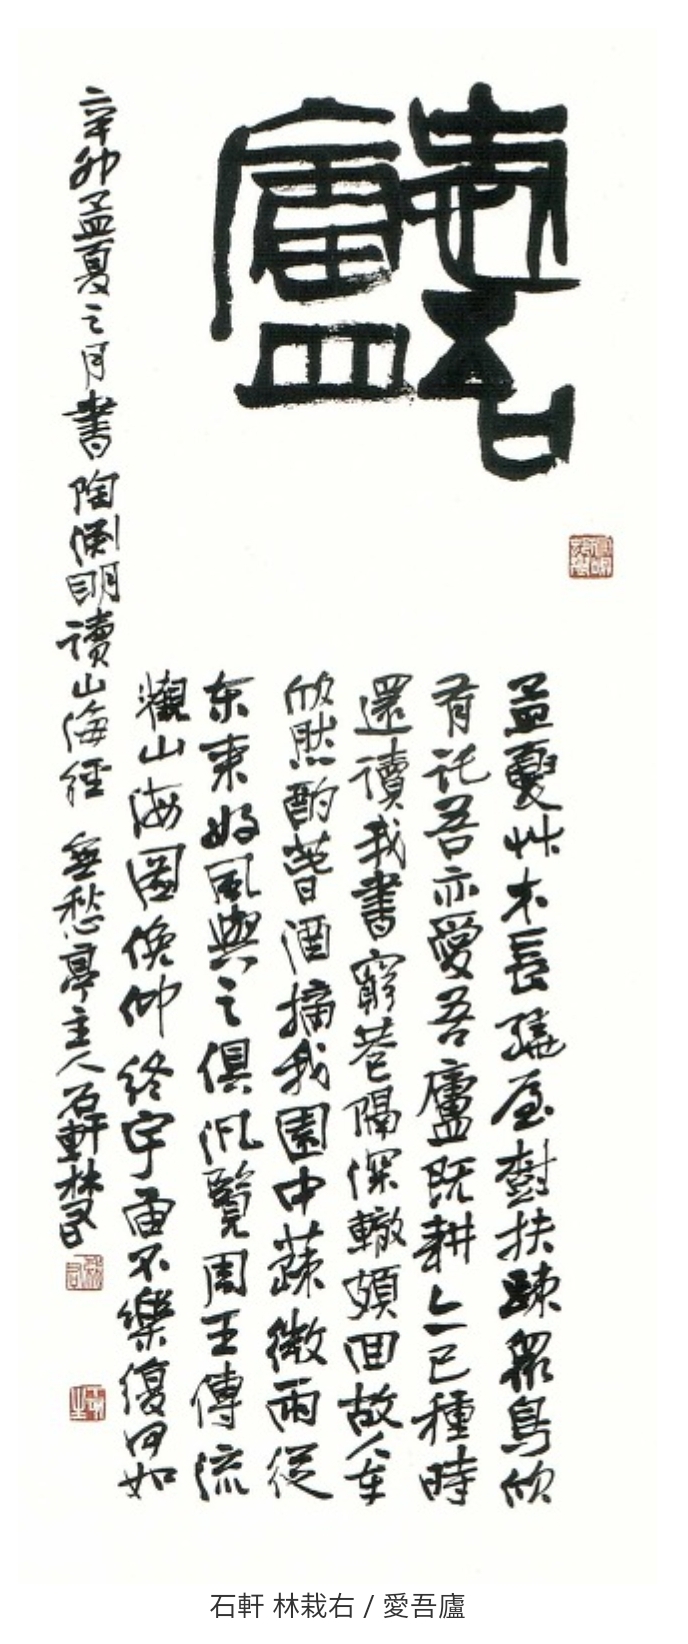 愛吾廬
孟夏艸木長繞屋樹扶疎眾鳥欣
有託吾亦愛吾廬既耕亦已種時
還讀我書窮巷隔深轍頗回故人車
欣然酌春酒摘我園中蔬微雨從
東來好風與之俱汎覽周王傳流
觀山海圖俛仰終宇宙不樂復何如
辛卯孟夏之月書陶淵明讀山海經 無愁亭主人石軒林
石軒 林栽右 / 愛吾廬